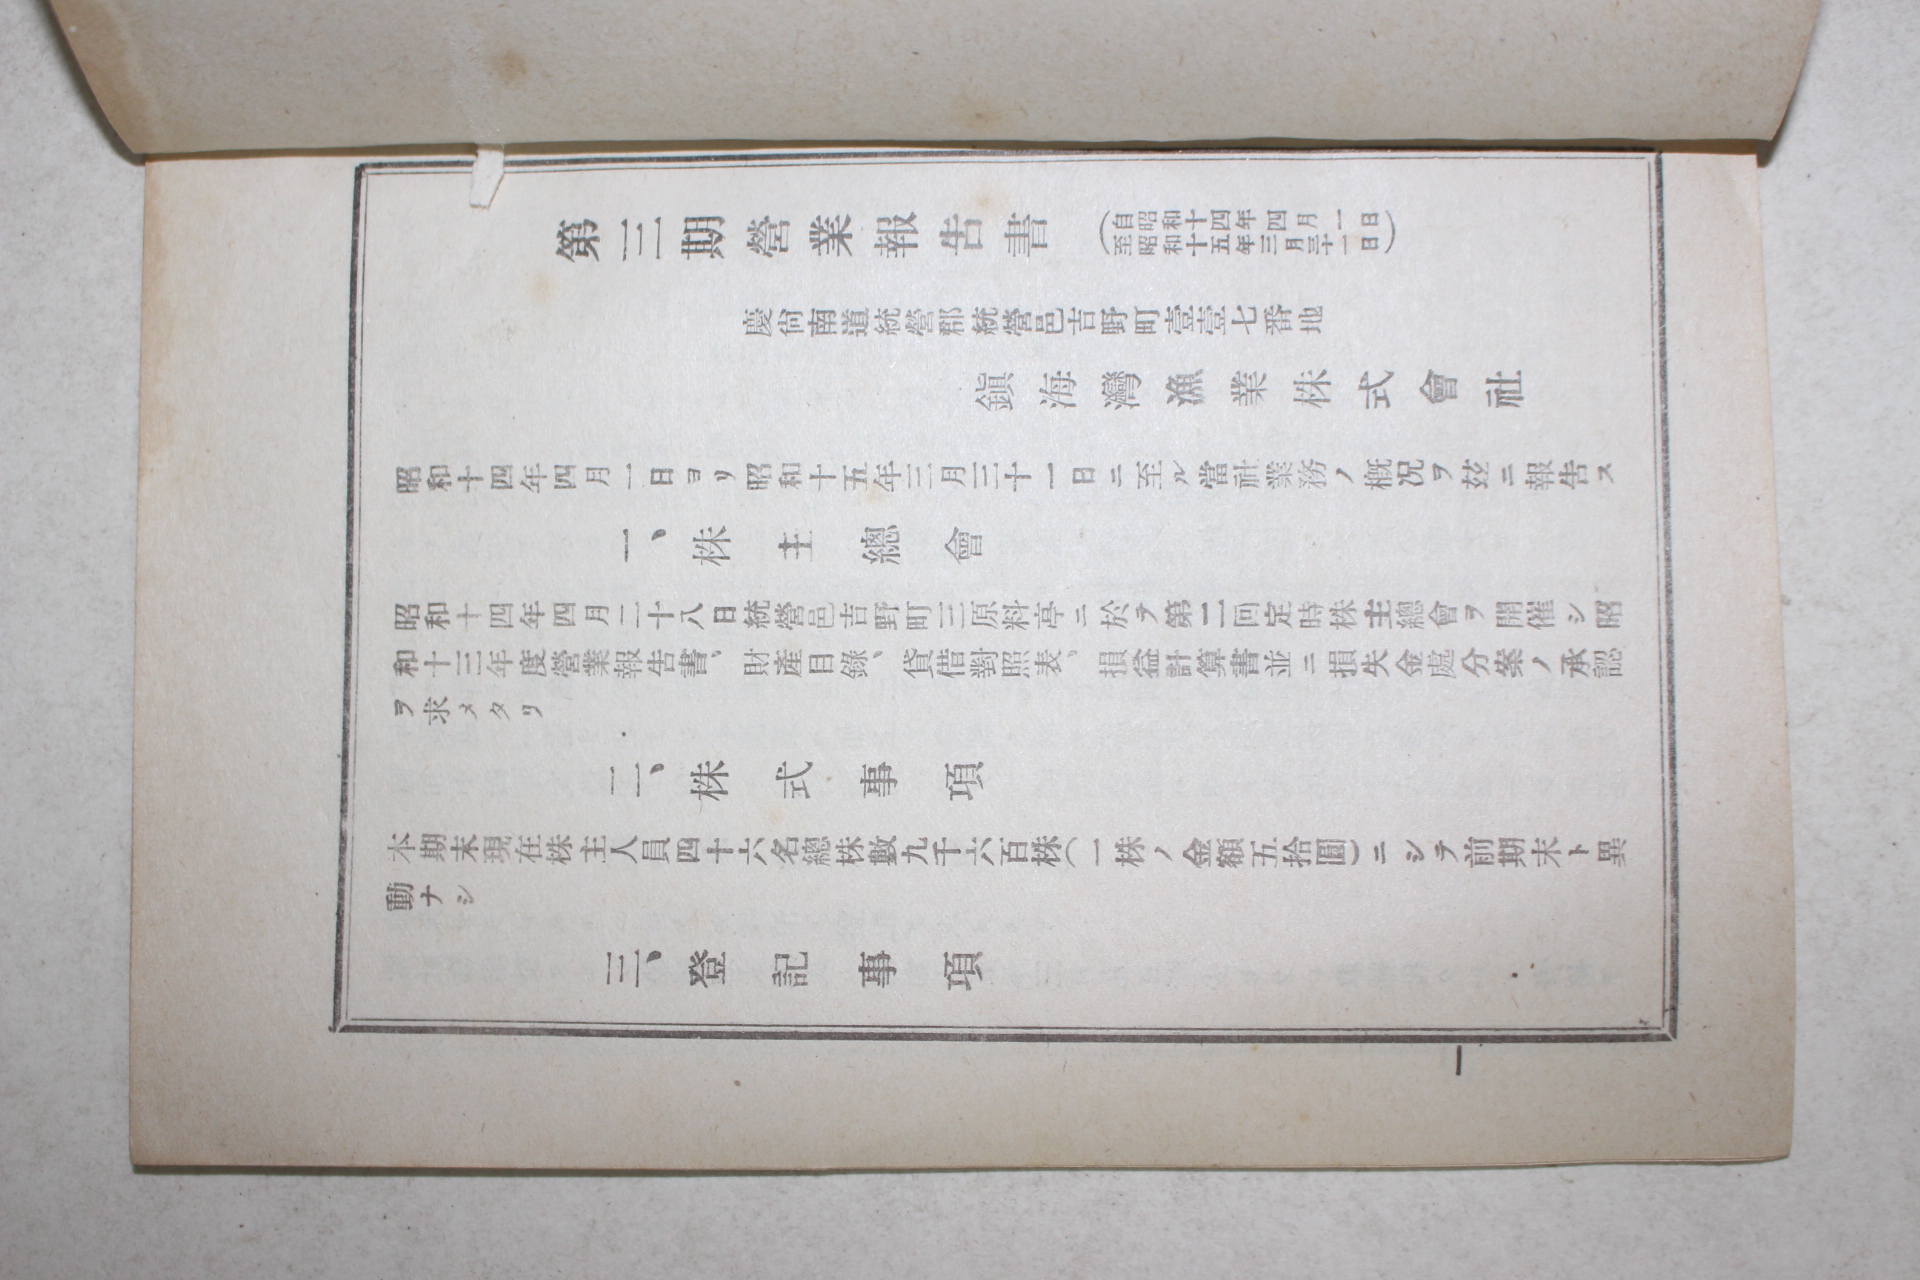 第三期營業報告書
(自昭和十四年四月一日
至昭和十五年三月三十一日)
慶尙南道統營郡統營邑吉野町壹壹七番地
鎭海灣漁業株式會社
昭和十四年四月一日ヨリ昭和十五年三月三十一日ニ至ル當社業務ノ槪況ヲ玆ニ報告ス
一、株主總會
昭和十四年四月二十八日統營邑吉野町三原料亭ニ於テ第二回定時株主總會ヲ開催シ昭
和十三年度營業報告書、財產目錄、貸借對照表、損益計算書並ニ損失金處分案ノ承認
ヲ求メタリ
二、株式事項
本期末現在株主人員四十六名總株數九千六百株(一株ノ金額五拾圓)ニシテ前期末ト異
動ナシ
三、登記事項
一